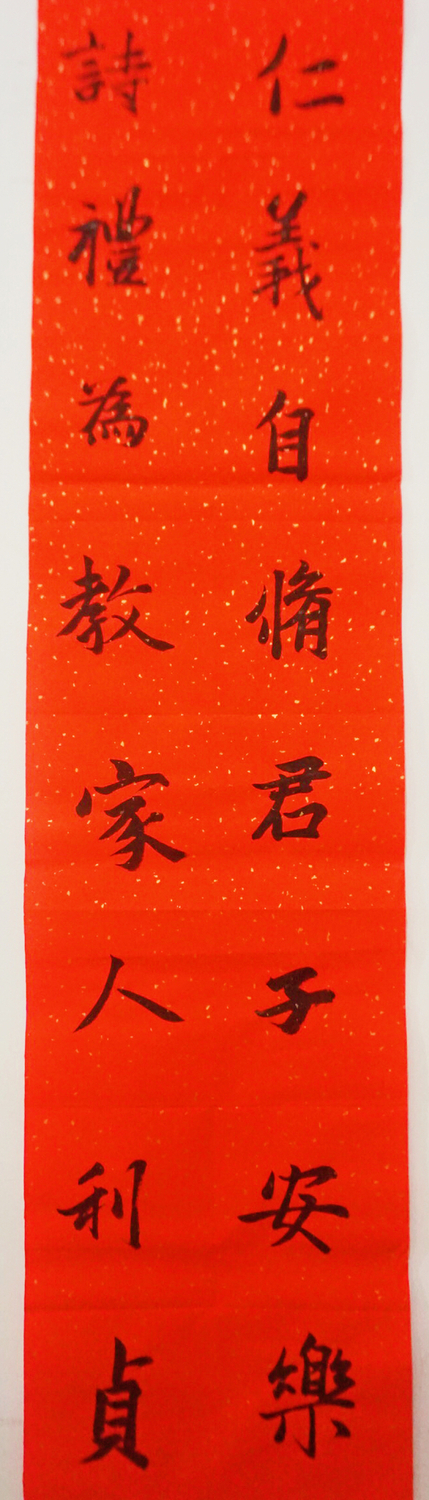 仁義自脩君子安樂
詩禮為教家人利貞